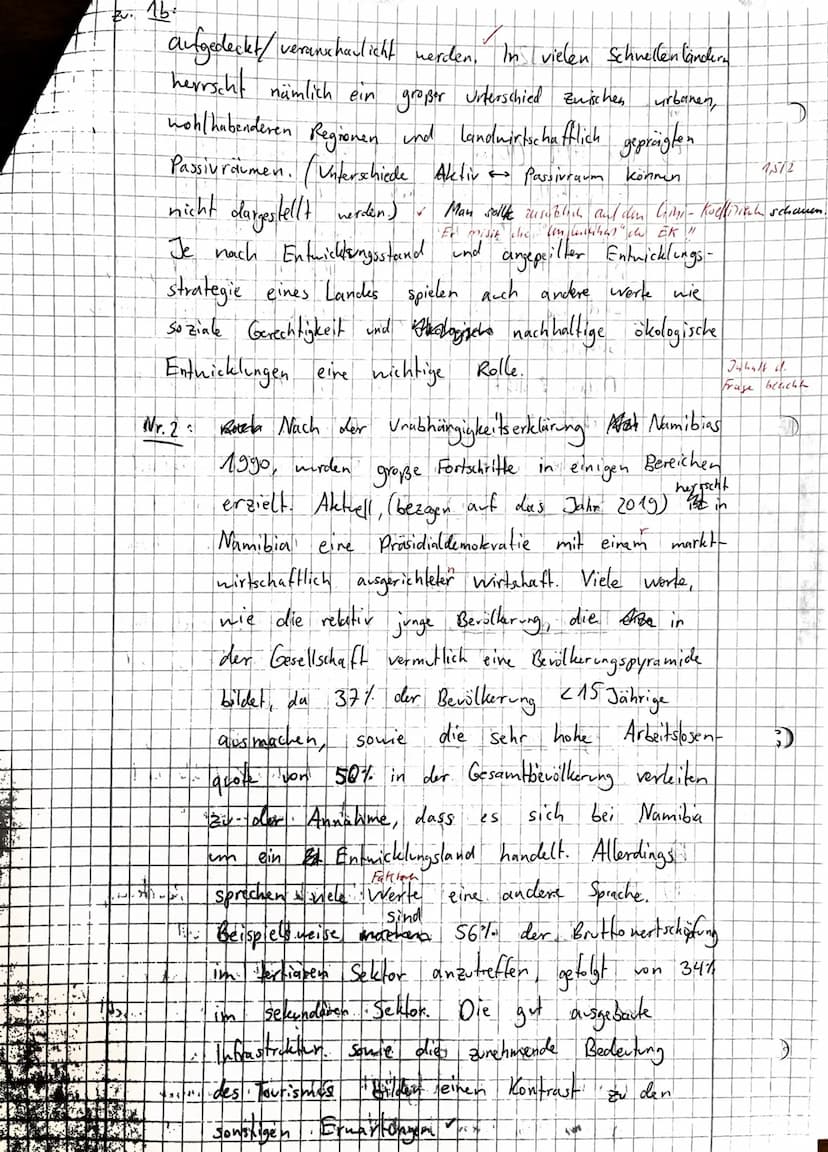 zu. 1b:
aufgedeckt/veranschaulicht werden. In vielen Schwellenländern
herrscht nämlich ein großer Unterschied zwischen urbanen,
wohlhabenderen Regionen und landwirtschafflich geprägten
Passivräumen. (Unterschiede Aktiv ↔ Passivraum können
1,5/2
nicht dargestellt werden.) Man sollte zusätzlich auf den Gini-Koeffizient schauen.
Er misst die "Ungleichheit" der EK !!
Je nach Entwicklungsstand und angepeilter Entwicklungs-
strategie eines Landes spielen auch andere Werte wie
soziale Gerechtigkeit und nachhaltige ökologische
Entwicklungen eine wichtige Rolle.
Inhalt d.
Frage
Nr. 2: Nach der Unabhängigkeitserklärung Namibias
1990, wurden große Fortschritte in einigen Bereichen
erzielt. Aktuell, (bezogen auf das Jahr 2019) herrscht in
Namibia eine Präsidialdemokratie mit einem markt-
wirtschaftlich ausgerichteten Wirtshaft. Viele Werte,
wie die relativ junge Bevölkerung, die in
der Gesellschaft vermutlich eine Bevölkerungspyramide
bildet, da 37% der Bevölkerung <15 Jährige
ausmachen, sowie die sehr hohe Arbeitslosen-
quote von 50% in der Gesamtbevölkerung verleiten
zu der Annahme, dass es sich bei Namibia
um ein Entwicklungsland handelt. Allerdings
Faktoren
sprechen viele Werte eine andere Sprache.
Beispielsweise sind 56% der Bruttowertschöpfung
im tertiären Sektor anzutreffen, gefolgt von 34%
im sekundären Sektor. Die gut ausgebaute
Infrastruktur sowie die zunehmende Bedeutung
des Tourismus bilden einen Kontrast zu den
sonstigen Erwartungen